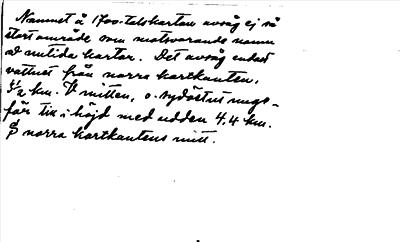 Namnet å 1700-talskartan avsåg ej så
stort område som motsvarande namn
å nutida kartor. Det avsåg endast
vattnet från norra kartkanten,
½ km. V mitten, o. sydöstut unge-
fär till i höjd med udden 4.4 km.
S norra kartkantens mitt.